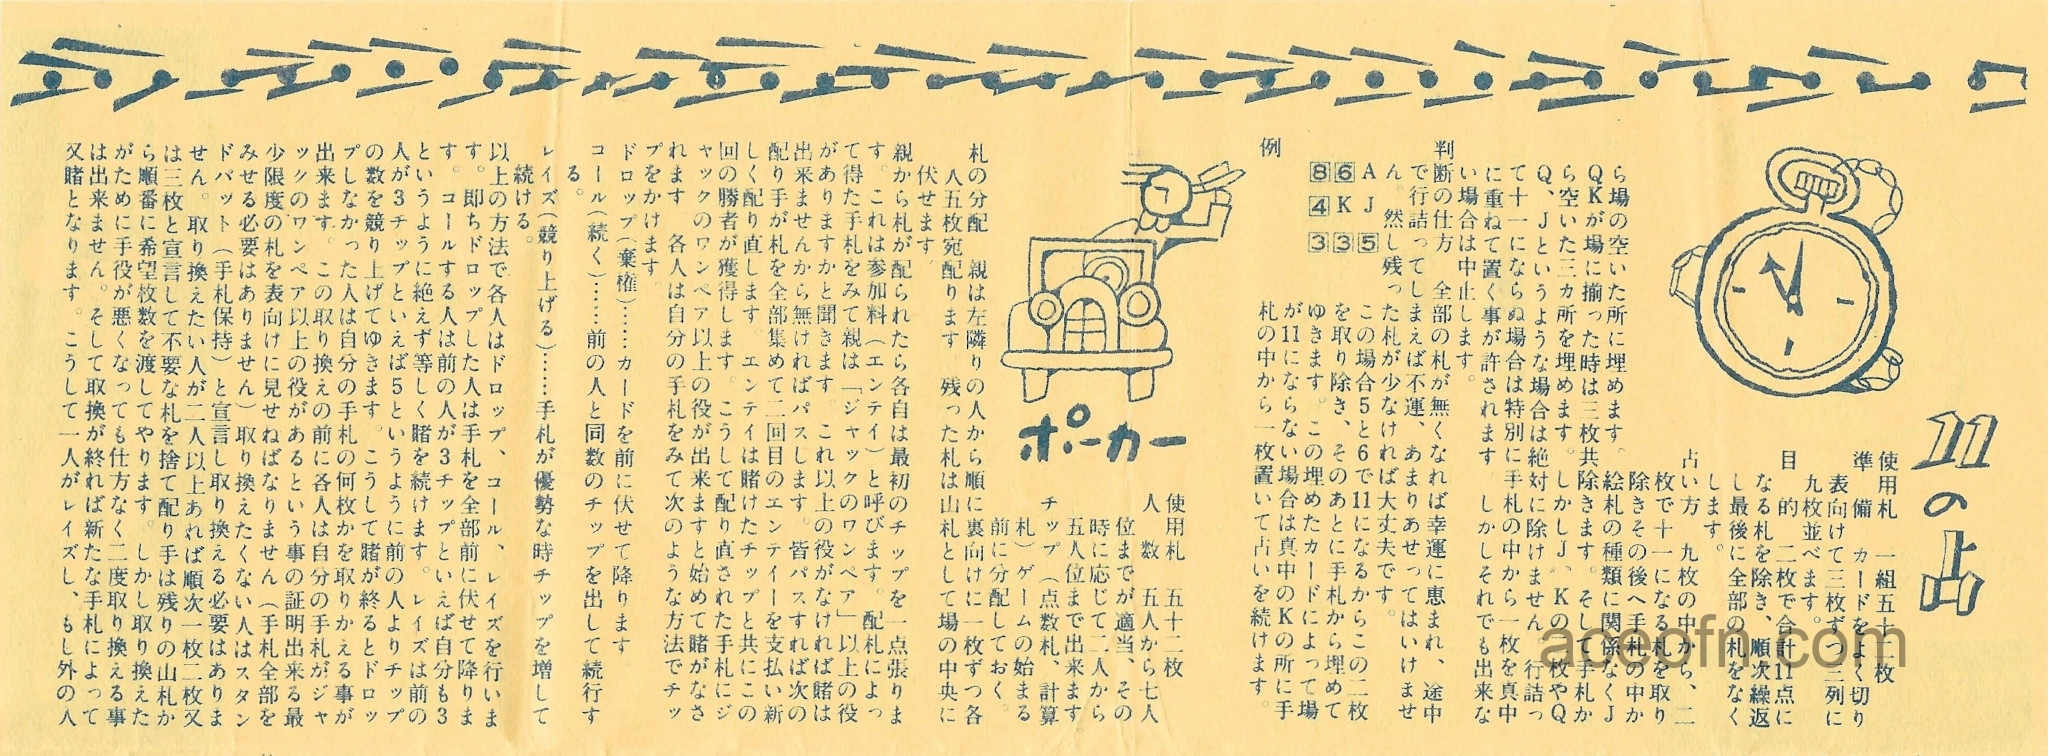 11の占
使用札　一組五十二枚
準　備　カードをよく切り
表向けて三枚ずつ三列に
九枚並べます。
目　的　二枚で合計11点に
なる札を除き、順次繰返
し最後に全部の札をなく
します。
占い方　九枚の中から、二
枚で十一になる札を取り
除きその後へ手札の中か
絵札の種類に関係なくJ
ら場の空いた所に埋めます。
QKが場に揃った時は三枚共除きます。そして手札か
ら空いた三カ所を埋めます。しかしJ、Kの二枚やQ
Q、Jというような場合は絶対に除けません。行詰っ
て十一にならぬ場合は特別に手札の中から一枚を真中
に重ねて置く事が許されます。しかしそれでも出来な
い場合は中止します。
判断の仕方　全部の札が無くなれば幸運に恵まれ、途中
で行詰ってしまえば不運、あまりあせってはいけませ
ん。然し残った札が少なければ大丈夫です。
例
A J 5
6 K 3
8 4 3
この場合5と6で11になるからこの二枚
を取り除き、そのあとに手札から埋めて
ゆきます。この埋めたカードによって場
が11にならない場合は真中のKの所に手
札の中から一枚置いて占いを続けます。
ポーカー
使用札　五十二枚
人　数　五人から七人
位までが適当、その
時に応じて二人から
五人位まで出来ます
チップ（点数札、計算
札）ゲームの始まる
前に分配しておく。
札の分配　親は左隣りの人から順に裏向けに一枚ずつ各
人五枚宛配ります。残った札は山札として場の中央に
伏せます。
親から札が配られたら各自は最初のチップを一点張りま
す。これは参加料（エンテイ）と呼びます。配札によっ
て得た手札をみて親は「ジャックのワンペア」以上の役
がありますかと聞きます。これ以上の役がなければ賭は
出来ませんから無ければパスします。皆パスすれば次の
配り手が札を全部集めて二回目のエンテイーを支払い新
しく配り直します。エンテイは賭けたチップと共にこの
回の勝者が獲得します。こうして配り直された手札にジ
ャックのワンペア以上の役が出来ますと始めて賭がなさ
れます。各人は自分の手札をみて次のような方法でチッ
プをかけます。
ドロップ（棄権）……カードを前に伏せて降ります。
コール（続く）……前の人と同数のチップを出して続行す
る。
レイズ（競り上げる）……手札が優勢な時チップを増して
続ける。
以上の方法で各人はドロップ、コール、レイズを行いま
す。即ちドロップした人は手札を全部前に伏せて降りま
す。コールする人は前の人が3チップといえば自分も3
というように絶えず等しく賭を続けます。レイズは前の
人が3チップといえば5というように前の人よりチップ
の数を競り上げてゆきます。こうして賭が終るとドロッ
プしなかった人は自分の手札の何枚かを取りかえる事が
出来ます。この取り換えの前に各人は自分の手札がジャ
ックのワンペア以上の役があるという事の証明出来る最
少限度の札を表向けに見せねばなりません（手札全部を
みせる必要はありません）取り換えたくない人はスタン
ドパット（手札保持）と宣言し取り換える必要はありま
せん。取り換えたい人が二人以上あれば順次一枚二枚又
は三枚と宣言して不要な札を捨て配り手は残りの山札か
ら順番に希望枚数を渡してやります。しかし取り換えた
がために手役が悪くなっても仕方なく二度取り換える事
は出来ません。そして取換が終れば新たな手札によって
又賭となります。こうして一人がレイズし、もし外の人
aceofn.com